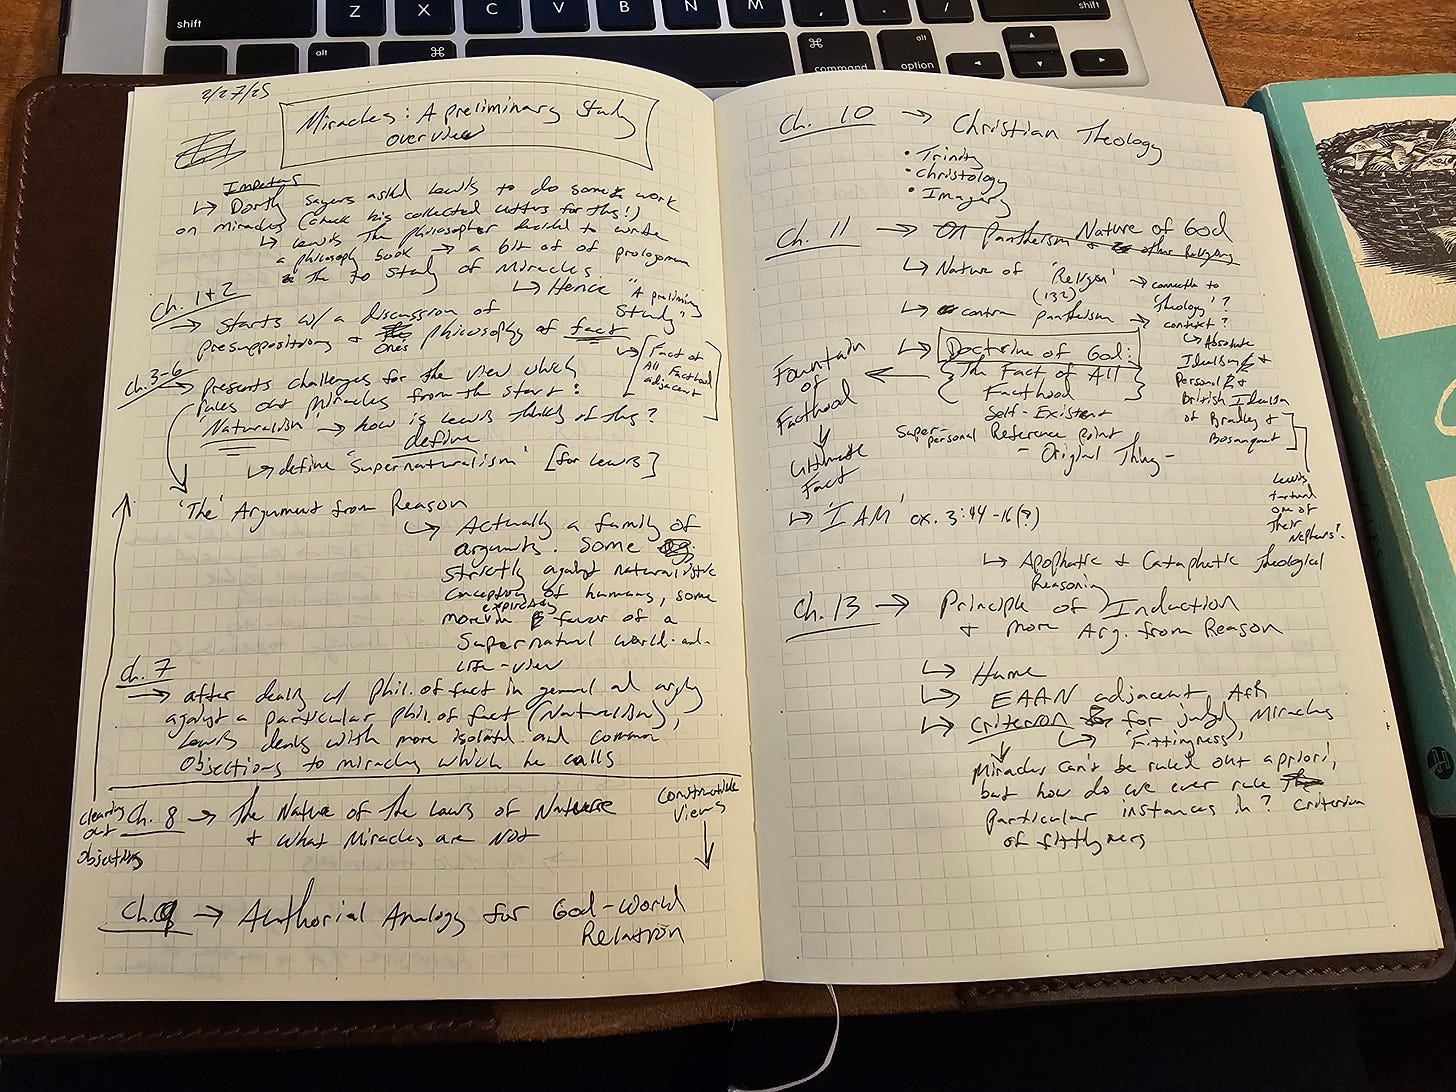 shift
Z X C V B N M , . /
shift
alt
⌘
⌘
command
alt
option
2/27/25
Miracles: A preliminary Study
overview
Impetus
↳ Dorthy Sayers asked Lewis to do some work
on miracles (check his collected letters for this!)
↳ Lewis the philosopher decided to write
a philosophy book → a bit of of prologomena
to study of Miracles.
↳ Hence "A preliminary
Study"
Ch. 1+2
→ Starts w/ a discussion of
presuppositions + ones philosophy of fact
↳ [Fact of
All Facthood
adjacent]
Ch. 3-6
→ presents challenges for the view which
rules out miracles from the start:
Naturalism → how is Lewis thinking of this?
define
↳ define 'Supernaturalism' [for Lewis]
'The' Argument from Reason
↳ Actually a family of
arguments. Some
strictly against naturalistic
conception of humans, some
more in expressly favor of a
Supernatural world-and-
life-view
Ch. 7
→ after dealing w/ phil. of fact in general and arguing
against a particular phil. of fact (Naturalism),
Lewis deals with more isolated and common
objections to miracles which he calls
clearing
out
objections
Constructive
Views
Ch. 8 → the Nature of the Laws of Nature
+ what Miracles are Not
Ch. 9 → Authorial Analogy for God-World
Relation
Ch. 10 → Christian Theology
• Trinity
• Christology
• Imagery
Ch. 11 → On Pantheism + other Religions Nature of God
↳ Nature of 'Religion' → connects to
(132) 'theology'?
↳ contra pantheism → context?
↳ Absolute
Idealism +
Personal +
British Idealism
of Bradley +
Bosanquet
Lewis
tutored
one of
their
Nephews!
↳ Doctrine of God:
{The Fact of All
Facthood}
Self-Existent
Super-personal Reference Point
- Original Thing -
Fountain
of
Facthood
Ultimate
Fact
↳ 'I AM' ex. 3:14-16(?)
↳ Apophatic + Cataphatic theological
Reasoning
Ch. 13 → Principle of Induction
+ more Arg. from Reason
↳ Hume
↳ EAAN adjacent, AfR
↳ Criterion for judging Miracles
↳ 'Fittingness'
Miracles can't be ruled out apriori,
but how do we ever rule
particular instances in? criterion
of fittingness